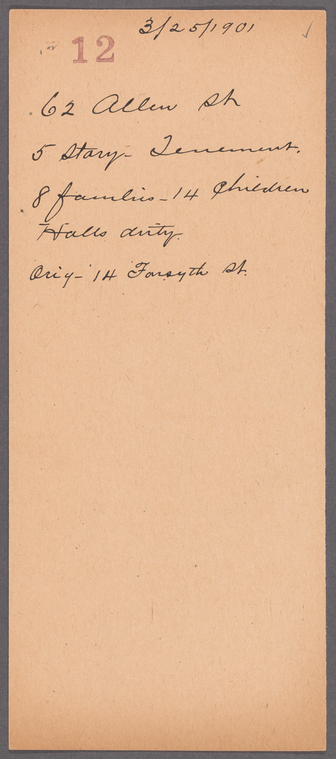 3/25/1901
12
62 Allen St
5 Story - Tenement.
8 families - 14 Children
Halls dirty.
Orig - 14 Forsyth St.